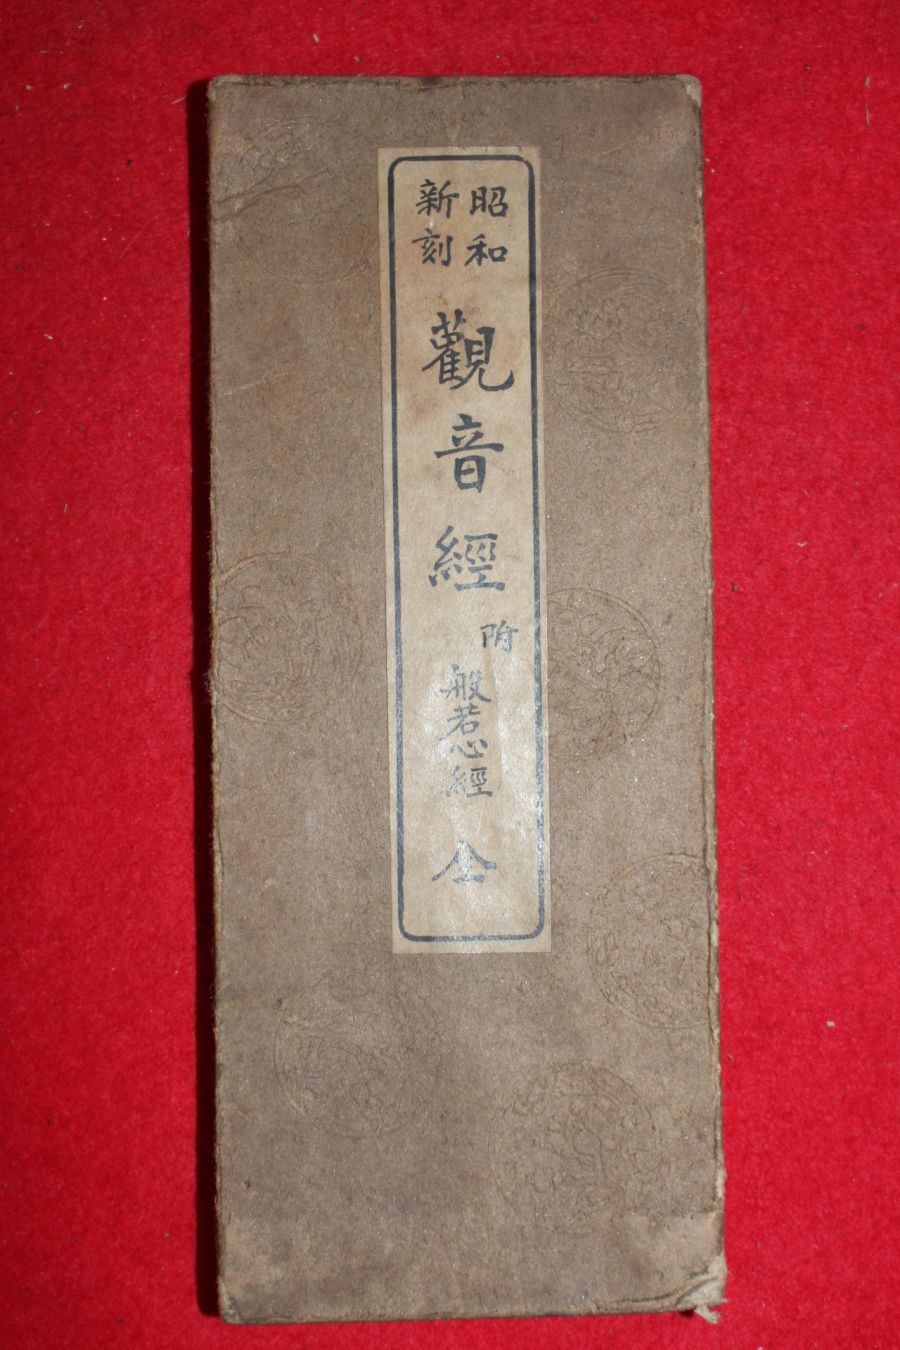 昭和
新刻
觀音經
附
般若心經
全